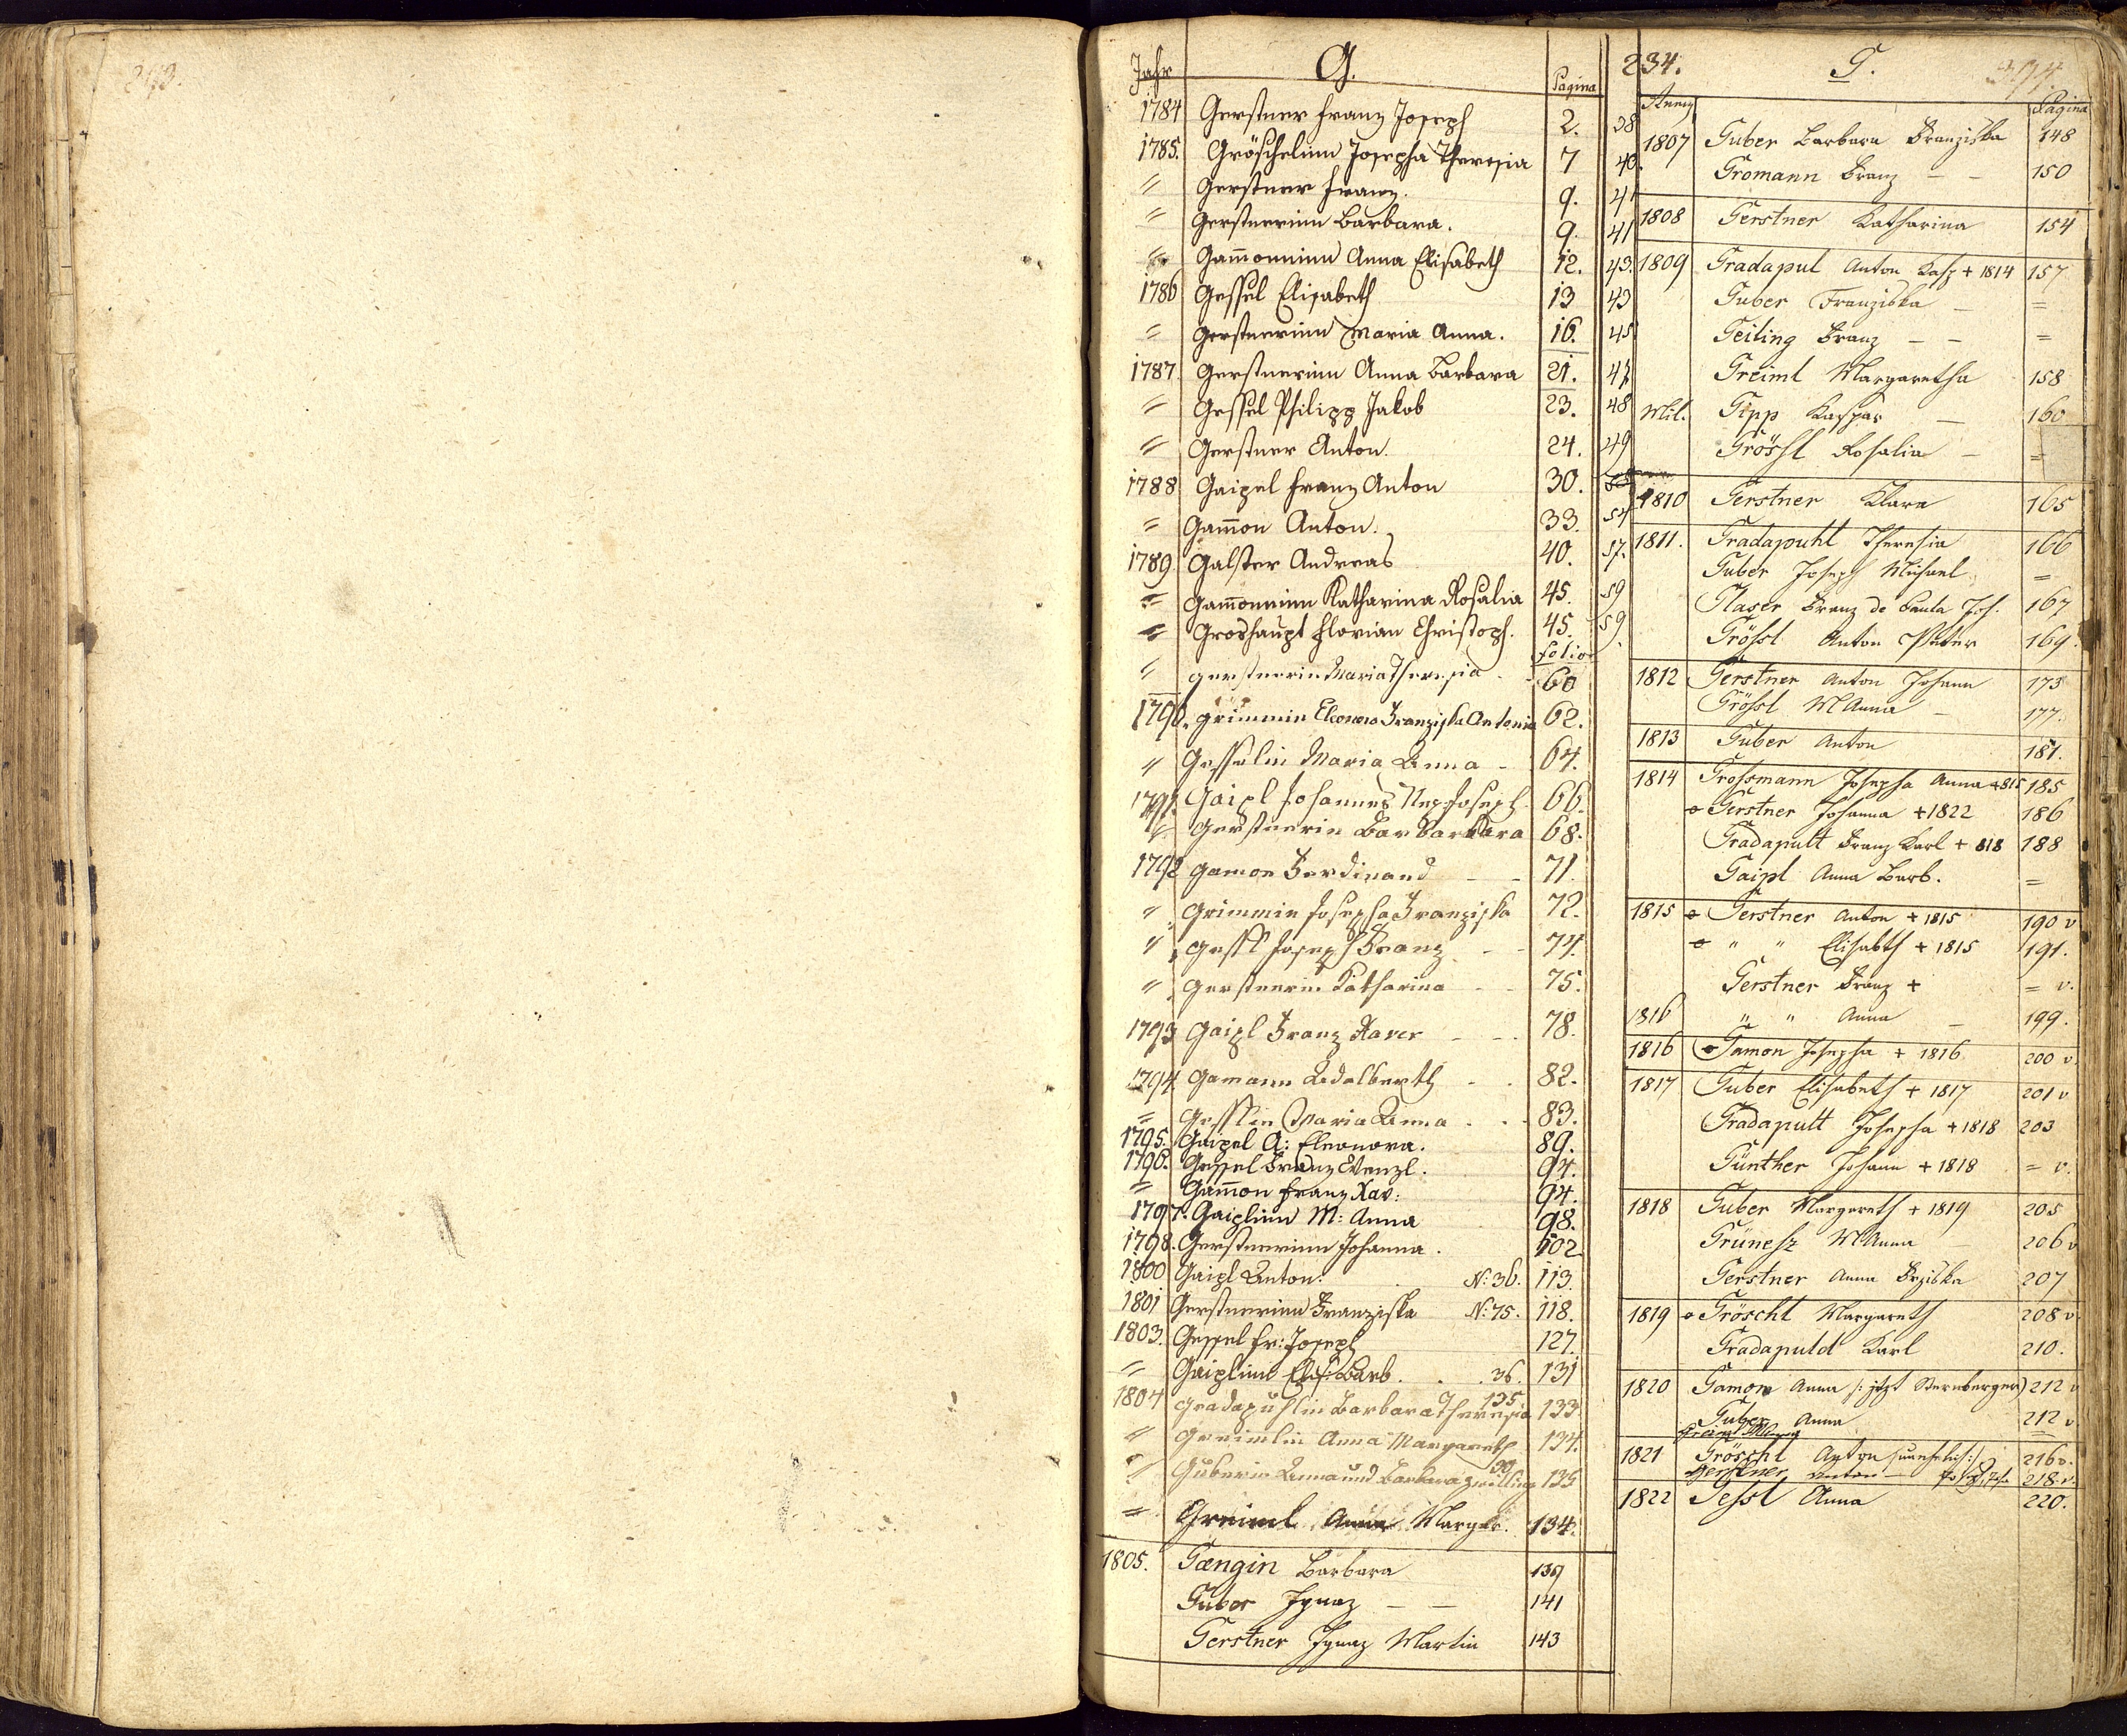 293.
Jahr G. Pagina
1784 Gerstner Franz Joseph 2. 38
1785. Gröschelinn Josepha Theresia 7 40.
〃 Gerstner Franz. 9. 41
〃 Gerstnerinn Barbara. 9. 41
〃 Gam̄oninn Anna Elisabeth 12. 43.
1786 Gessel Elisabeth 13 43
〃 Gerstnerinn Maria Anna. 16. 45
1787 Gerstnerinn Anna Barbara 21. 47
〃 Gessel Philipp Jakob 23. 48
〃 Gerstner Anton. 24. 49
1788 Gaipel Franz Anton 30.
〃 Gam̄on Anton. 33. 54
1789 Galster Andreas 40. 57.
〃 Gam̄oninn Katharina Rosalia 45. 59
〃 Groshaupt Florian Christoph. 45. 59.
folio
〃 Gerstnerin Maria Theresia - 60
1790. Grimmin Eleonora Franziska Antonia 62.
〃 Gesselin Maria Anna - 64.
1791. Gaipl Johannes Nep. Joseph 66.
〃 Gerstnerin Barbara 68.
1792 Gamon Ferdinand - - 71.
〃 Grimmin Josepha Franziska 72.
〃 Gessl Joseph Franz - - 74.
〃 Gerstnerin Katharina - - 75.
1793 Gaipl Franz Xaver - - - 78.
1794. Gamann Adalberth - - 82.
〃 Gesslin Maria Anna - - 83.
1795. Gaipel A: Eleonora. 89.
1796. Gessel Franz Wenzl. 94.
〃 Gam̄on Franz Xav: 94.
1797. Gaiplinn M: Anna 98.
1798. Gerstnerinn Johanna. 102
1800 Gaipl Anton. N: 36. 113.
1801 Gerstnerinn Franziska N: 75. 118.
1803. Gessel Fr: Joseph 127.
〃 Gaiplinn Elis: Barb. . . 36. 131
1804 Gradapuhlin Barbara Theresia 135 133
〃 Greimlin Anna Margareth 134.
〃 Guberin Anna und Barbara Zwilling 135
〃 Greiml Anna Margar. 134.
1805. Gængin Barbara 139
Guber Ignaz - - 141
Gerstner Ignaz Martin 143
234. G.
Pagina
1807 Guber Barbara Franziska 148
Gromann Franz - - 150
1808 Gerstner Katharina 154
1809 Gradapul Anton Kasp + 1814 157
Guber Franziska - =
Geiling Franz - - =
Greiml Margaretha 158
Mil. Gipp Kaspar - 160
Grössl Rosalia - =
1810 Gerstner Klara 165
1811. Gradapuhl Theresia 166
Guber Joseph Michael =
Glaser Franz de Paula Jos. 167
Grössl Anton Peter 169.
1812 Gerstner Anton Johann 175
Grössl M Anna - 177.
1813 Guber Anton 181.
1814 Grossmann Josepha Anna + 815 185
o Gerstner Johanna + 1822 186
Gradapult Franz Karl + 818 188
Gaipl Anna Barb. =
1815 o Gerstner Anton + 1815 190 v
o 〃 〃 Elisabth + 1815 191.
Gerstner Franz + = v.
1816 〃 〃 Anna - 199.
1816 o Gamon Josepha + 1816 200 v.
1817 Guber Elisabeth + 1817 201 v
Gradapult Josepha + 1818 203
Günther Johann + 1818 = v.
1818 Guber Margareth + 1819 205
Grünesz M Anna 206 v
Gerstner Anna Frziska 207
1819 o Gröschl Margareth 208 v.
Gradapuld Karl 210.
1820 Gamon Anna /: jetzt Sternberger) 212 v
Guber Anna 212 v
1821 Gröschl Anton /:unehelich:/ 216 v.
Gerstner 218 v.
1822 Gessl Anna 220.